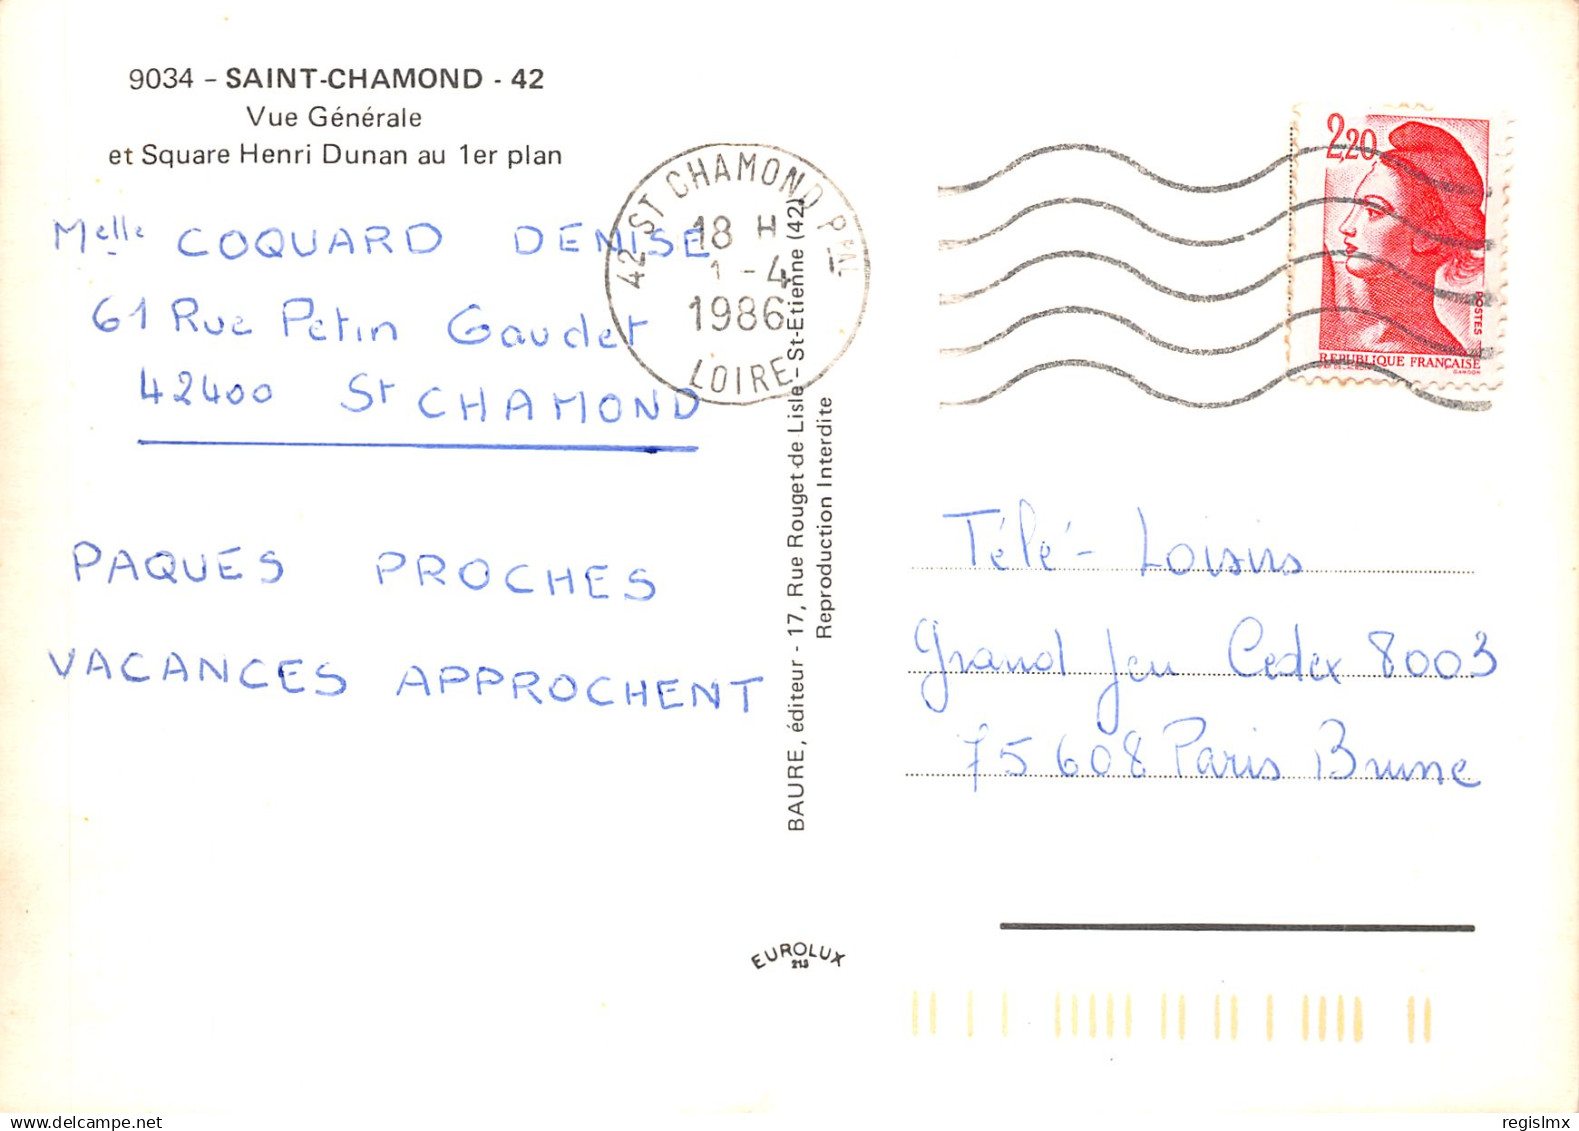 9034 - SAINT-CHAMOND - 42
Vue Générale
et Square Henri Dunan au 1er plan
Melle COQUARD DENISE
61 Rue Petin Gaudet
42400 St CHAMOND
PAQUES PROCHES
VACANCES APPROCHENT
42 ST CHAMOND PAL
18 H
1 - 4
1986
LOIRE
BAURE, éditeur - 17, Rue Rouget de Lisle - St-Etienne (42)
Reproduction Interdite
2,20
POSTES
REPUBLIQUE FRANÇAISE
GANDON
Télé-Loisirs
Grand Jeu Cedex 8003
75608 Paris Brune
EUROLUX
213
regislmx